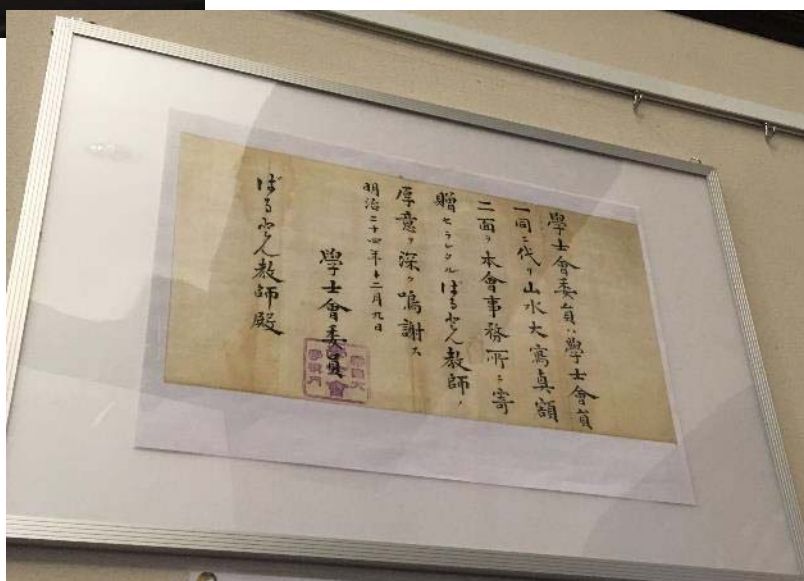 學士會委員ハ學士會員
一同ニ代リ山水大寫真額
二面ヲ本會事務所ニ寄
贈セラレタルばるとん教師ノ
厚意ヲ深ク鳴謝ス
明治二十四年十二月九日
學士會委員
ばるとん教師殿